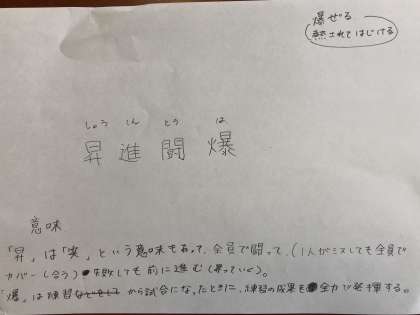 爆ぜる
熱されてはじける
しょう しん とう は
昇進闘爆
意味
「昇」は「笑」という意味もあって、全員で闘って、(1人がミスしても全員で
カバーし合う) 失敗しても前に進む(昇っていく)。
「爆」は練習から試合になったときに、練習の成果を全力で発揮する。